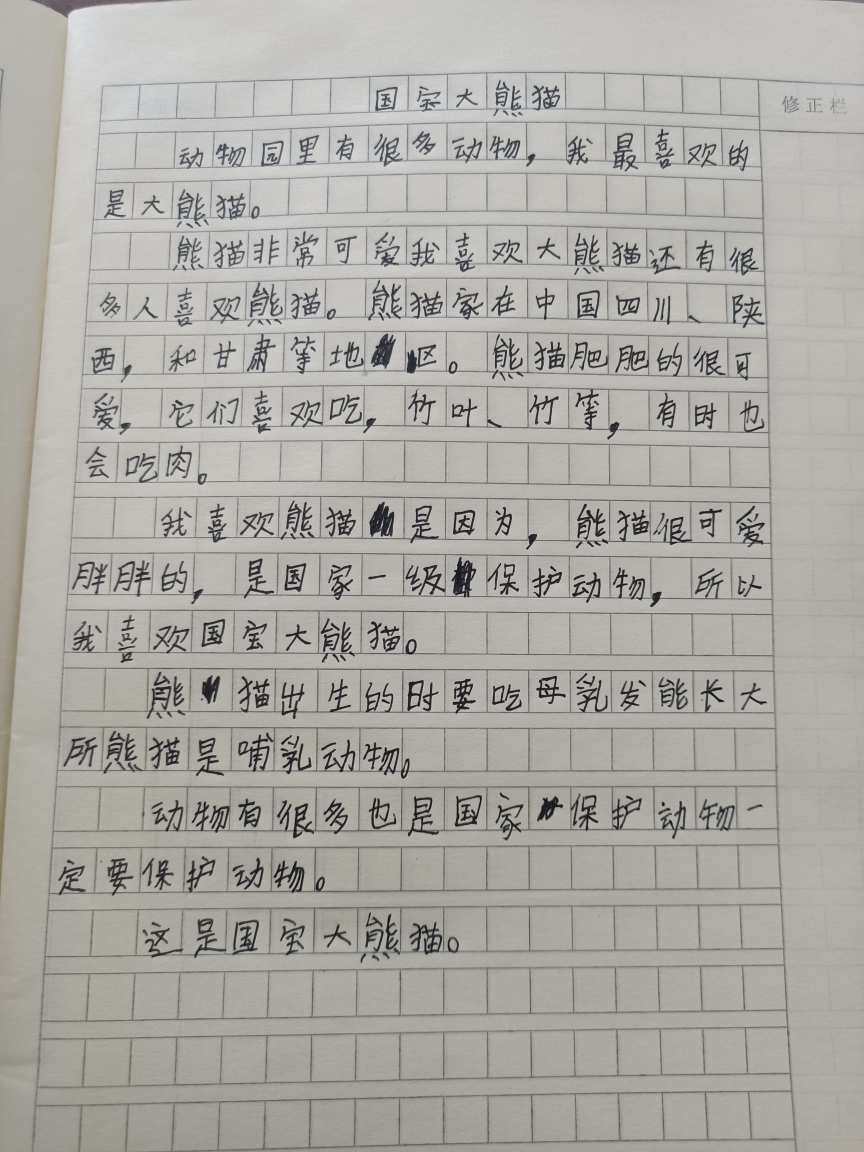 国宝大熊猫
修正栏
动物园里有很多动物，我最喜欢的
是大熊猫。
熊猫非常可爱我喜欢大熊猫还有很
多人喜欢熊猫。熊猫家在中国四川、陕
西，和甘肃等地区。熊猫肥肥的很可
爱，它们喜欢吃，竹叶、竹等，有时也
会吃肉。
我喜欢熊猫是因为，熊猫很可爱
胖胖的，是国家一级保护动物，所以
我喜欢国宝大熊猫。
熊猫出生的时要吃母乳发能长大
所熊猫是哺乳动物。
动物有很多也是国家保护动物一
定要保护动物。
这是国宝大熊猫。